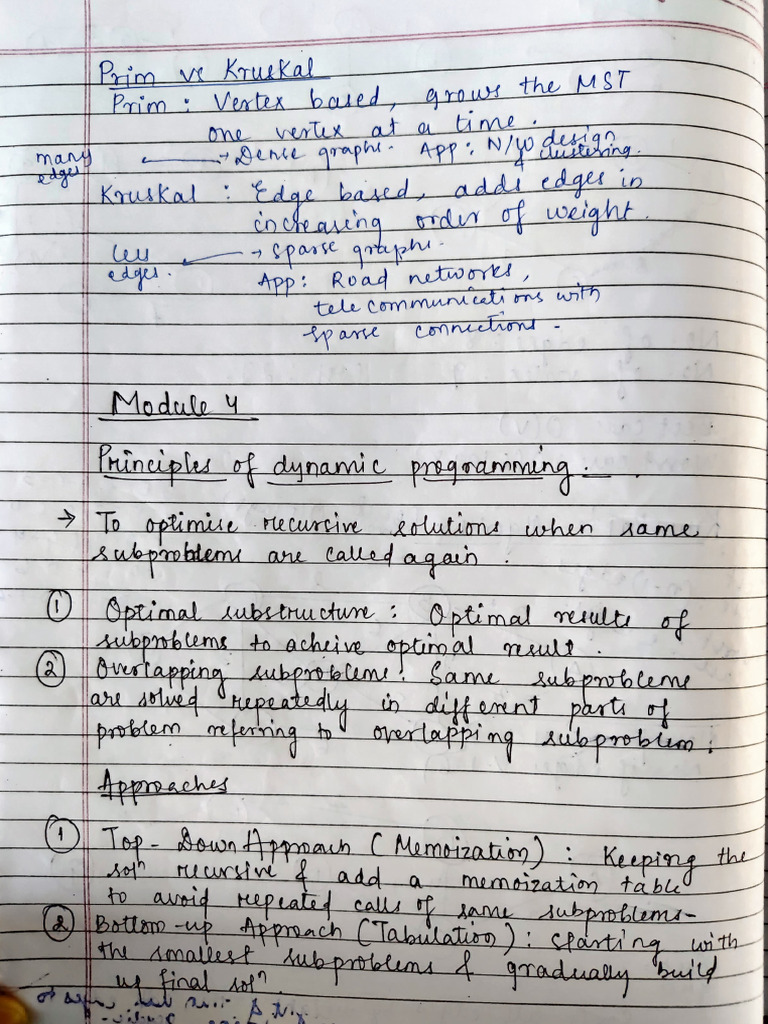 Prim vs Kruskal
Prim : Vertex based, grows the MST
one vertex at a time.
many edges ← → Dense graphs. App: N/W design & clustering.
Kruskal : Edge based, adds edges in
increasing order of weight.
less edges. ← → Sparse graphs.
App: Road networks,
telecommunications with
sparse connections.
Module 4
Principles of dynamic programming.
→ To optimise recursive solutions when same
subproblems are called again.
① Optimal substructure : Optimal results of
subproblems to acheive optimal result.
② Overlapping subproblems: Same subproblems
are solved repeatedly in different parts of
problem referring to overlapping subproblem.
Approaches
① Top-Down Approach (Memoization) : Keeping the
solⁿ recursive & add a memoization table
to avoid repeated calls of same subproblems-
② Bottom-up Approach (Tabulation) : starting with
the smallest subproblems & gradually build
up final solⁿ.